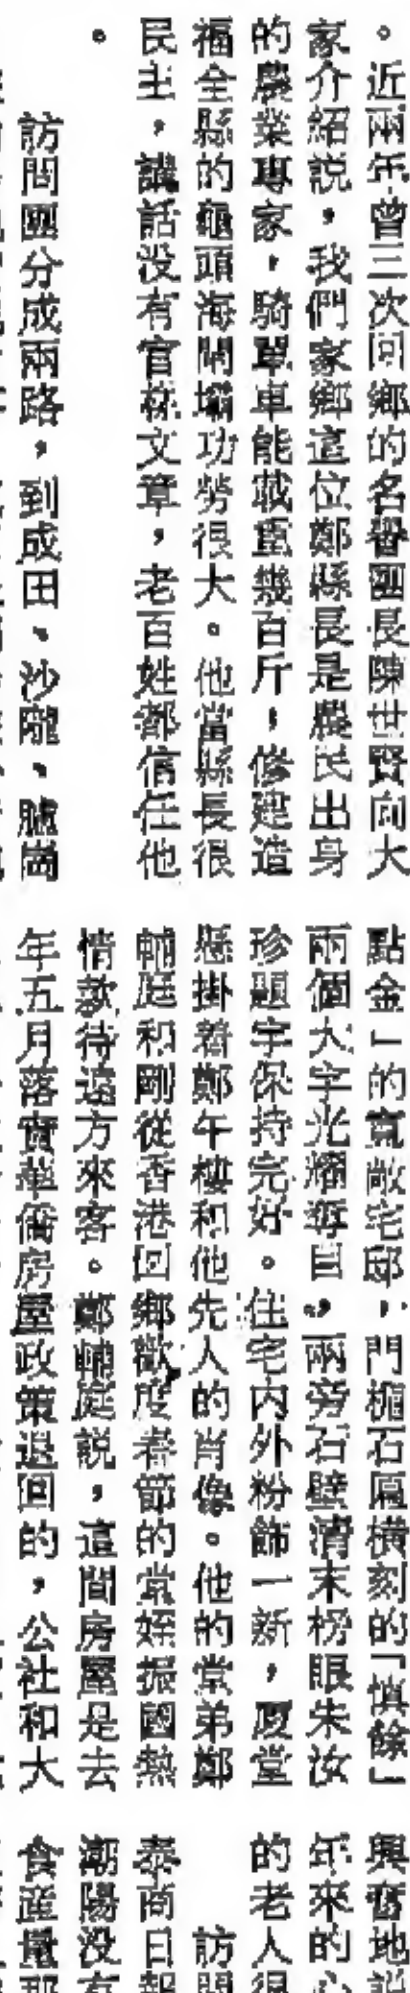 。近兩年曾三次回鄉的名譽團長陳世賢向大
家介紹説，我們家鄉這位鄭縣長是農民出身
的農業專家，騎單車能載重幾百斤，修建造
福全縣的龜頭海閘壩功勞很大。他當縣長很
民主，講話没有官樣文章，老百姓都信任他
。
訪問團分成兩路，到成田、沙隴、臚崗
點金」的寬敞宅邸，門楣石匾横刻的「慎餘」
兩個大字光耀奪目，兩旁石壁清末榜眼朱汝
珍題字保持完好。住宅内外粉飾一新，廈堂
懸掛着鄭午樓和他先人的肖像。他的堂弟鄭
輔庭和剛從香港回鄉歡度春節的堂姪振國熱
情款待遠方來客。鄭輔庭説，這間房屋是去
年五月落實華僑房屋政策退回的，公社和大
興奮地説
年來的心
的老人很
訪問
泰商日報
潮陽没有
食産量那